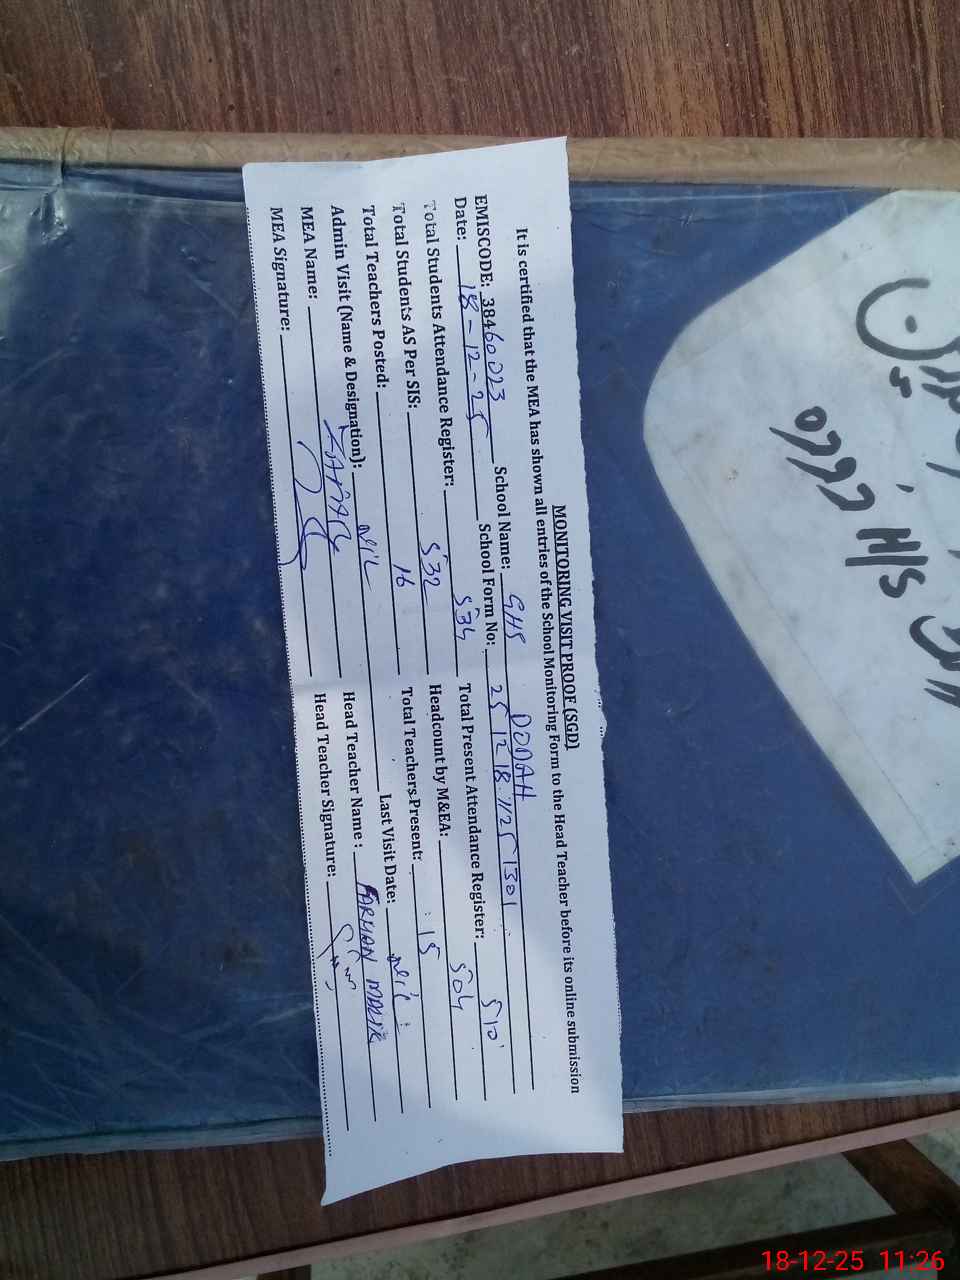 MONITORING VISIT PROOF (SGD)
It is certified that the MEA has shown all entries of the School Monitoring Form to the Head Teacher before its online submission
EMISCODE: 38460023 School Name: GHS DODAH
Date: 18-12-25 School Form No: 251218.11251301
Total Students Attendance Register: 534 Total Present Attendance Register: 510
Total Students AS Per SIS: 532 Headcount by M&EA: 504
Total Teachers Posted: 16 Total Teachers Present: 15
Admin Visit (Name & Designation): NIL Last Visit Date: NIL
MEA Name: Head Teacher Name: FARHAN MALIK
MEA Signature: Head Teacher Signature:
H/S
18-12-25 11:26